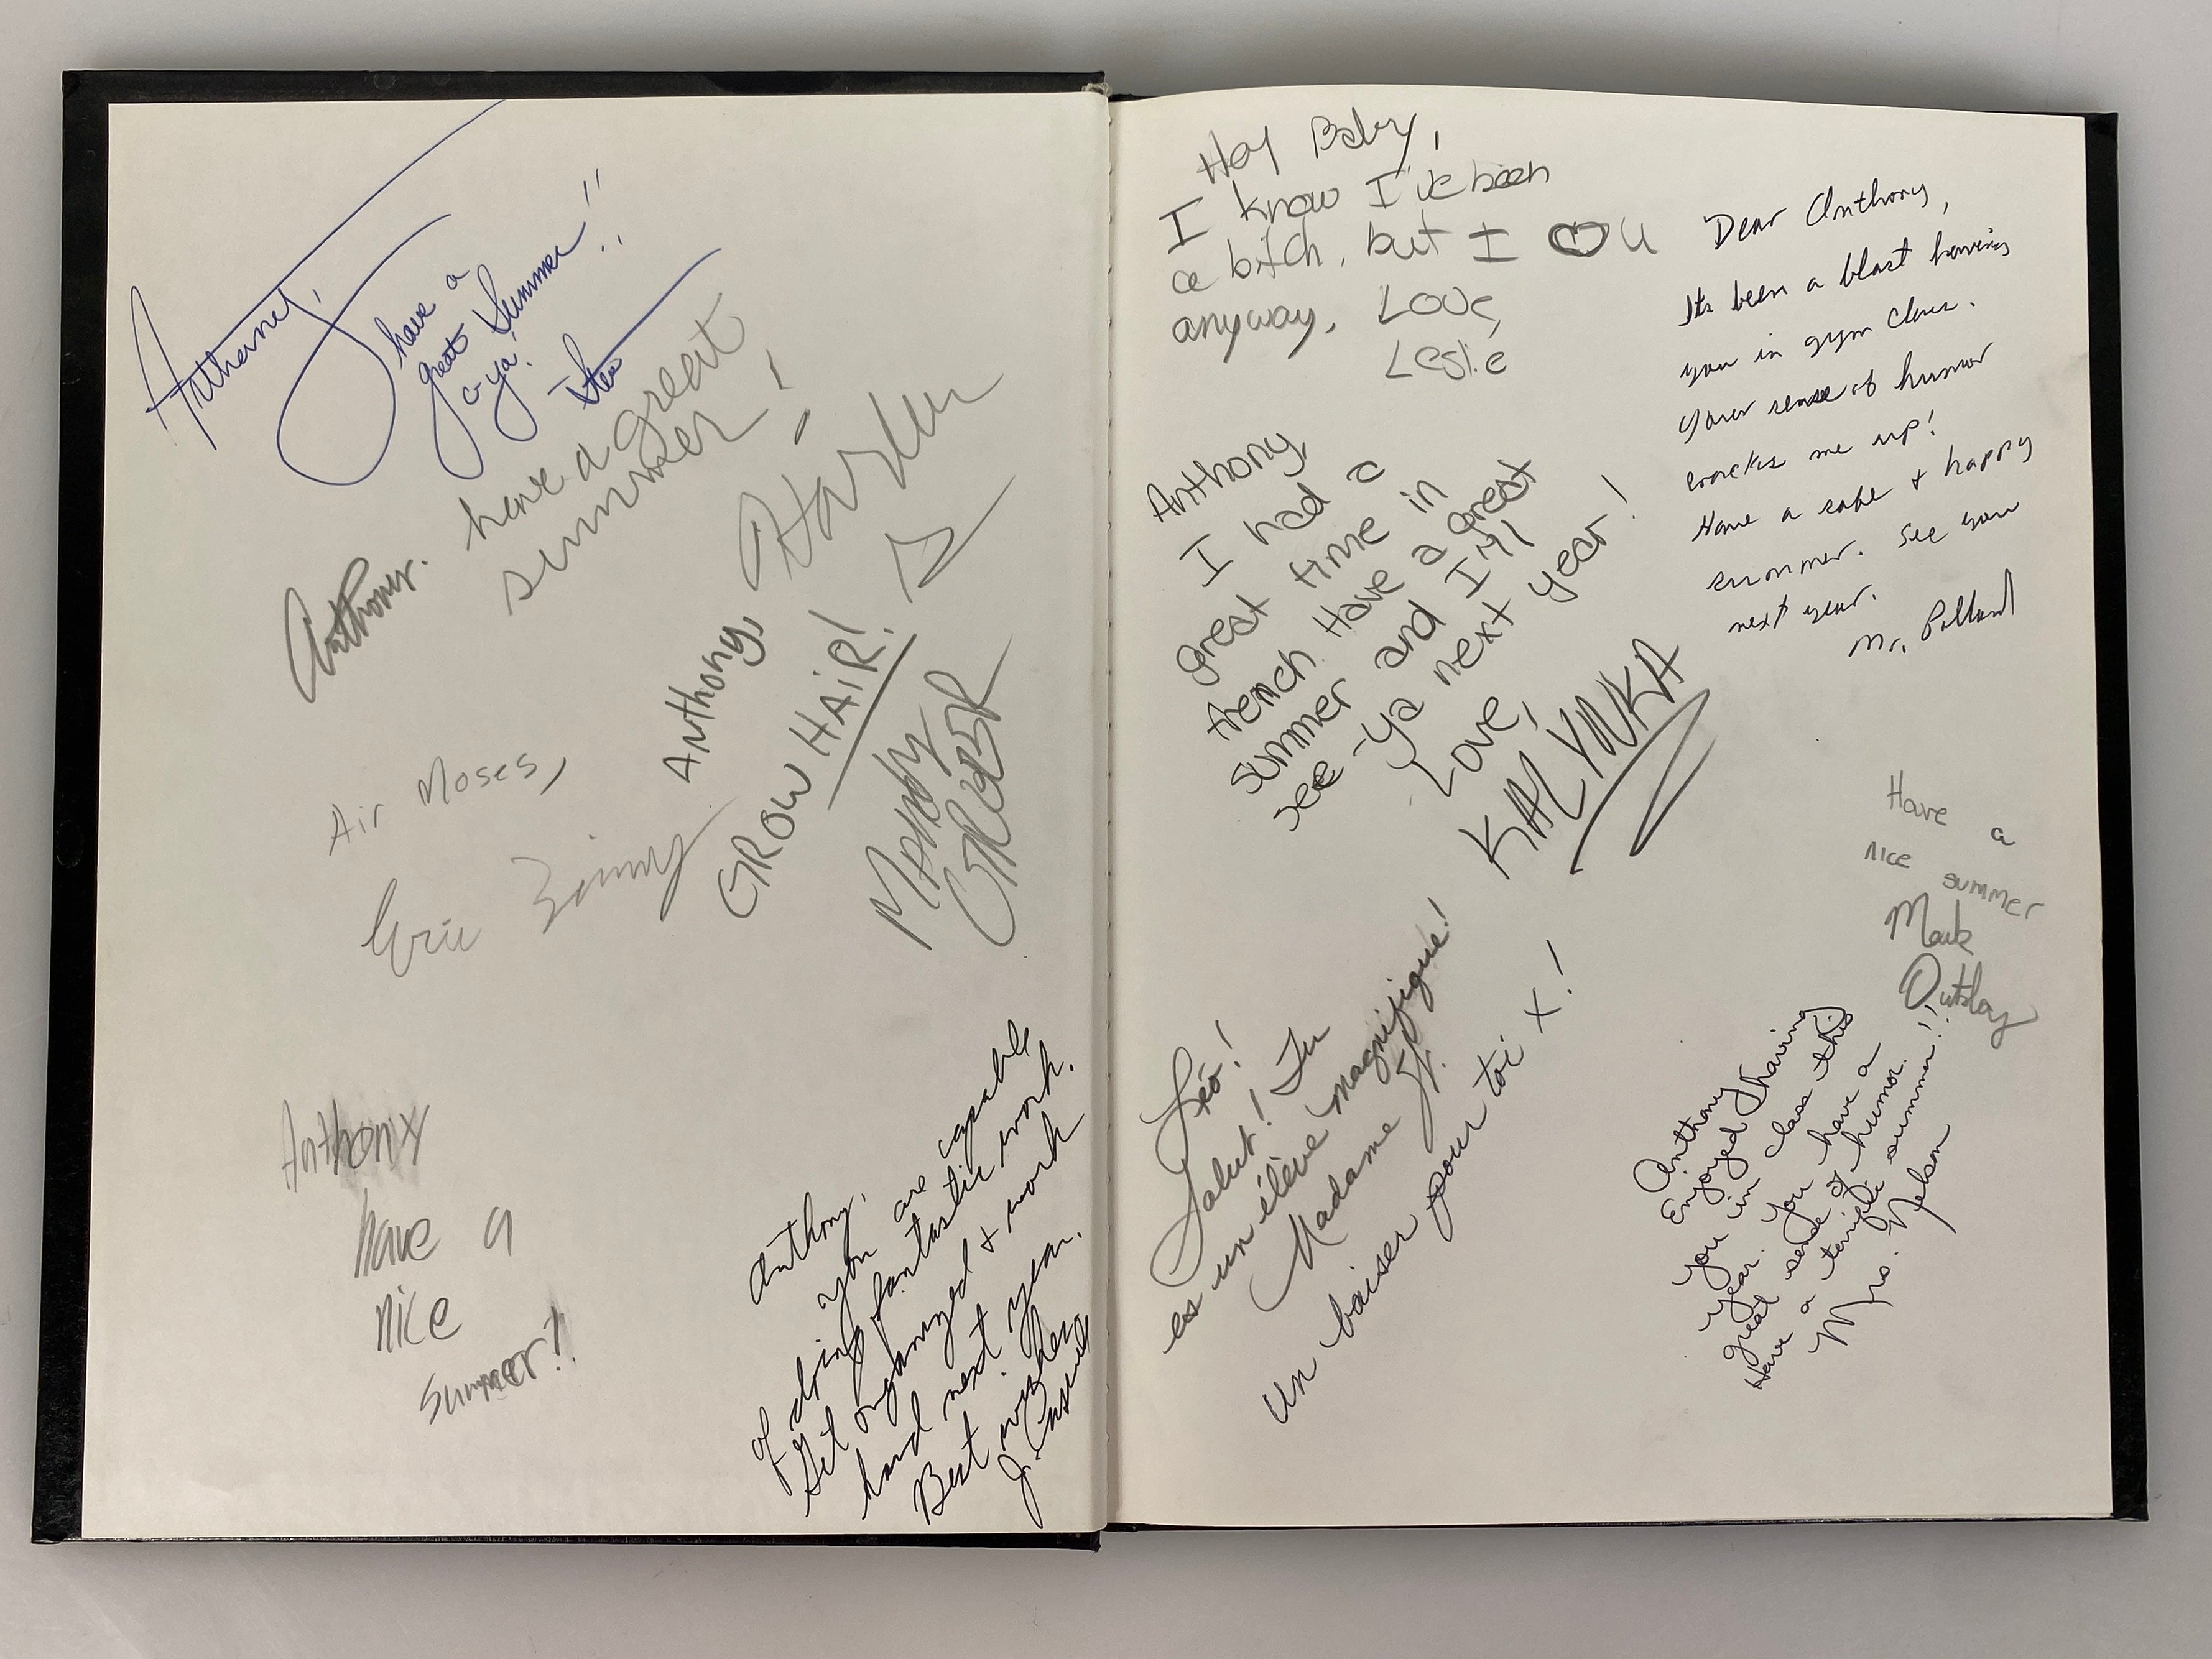 Anthony,
have a
great Summer!!
c-ya!
Anthony.
have a great
summer!
Anthony,
GROW HAIR!
Mandy
Air Moses,
Eric
Anthony
have a
nice
summer!!
Anthony,
you are capable
of doing fantastic work.
Get organized & work
hard next year.
Best wishes
J.
Hey Baby,
I know I've been
a bitch, but I ♡ U
anyway. Love,
Leslie
Dear Anthony,
Its been a blast having
you in gym class.
Your sense of humor
cracks me up!
Have a safe & happy
summer. See you
next year.
Mr. Pollard
Anthony,
I had a
great time in
french. Have a great
summer and I'll
see-ya next year!
Love,
KALYNKA
Have a
nice summer
Mark
Outslay
Léo!
Salut! Tu
es un élève magnifique!
Madame St.
un baiser pour toi x!
Anthony
Enjoyed having
you in class this
year. You have a
great sense of humor.
Have a terrific summer!!!
Mrs. Nelson